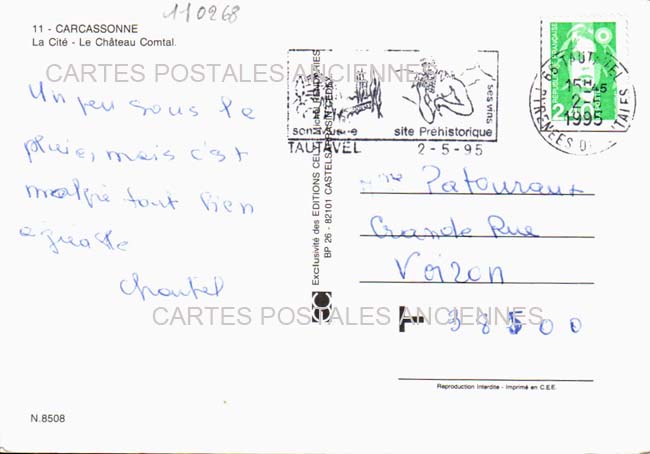 110268
11 - CARCASSONNE
La Cité - Le Château Comtal.
CARTES POSTALES ANCIENNES
Un peu sous la
pluie, mais c'est
malgré tout bien
agréable
Chantal
N.8508
Exclusivité des EDITIONS
BP 26 - 82101 CASTELSARRASIN CEDEX
son
site Préhistorique
ses vins
TAUTAVEL
2-5-95
66 TAUTAVEL
15H45
2-5
1995
PYRENEES OR
REPUBLIQUE FRANÇAISE
2
Mme Patouraux
Grande Rue
Voiron
38500
CARTES POSTALES ANCIENNES
Reproduction Interdite - Imprimé en C.E.E.